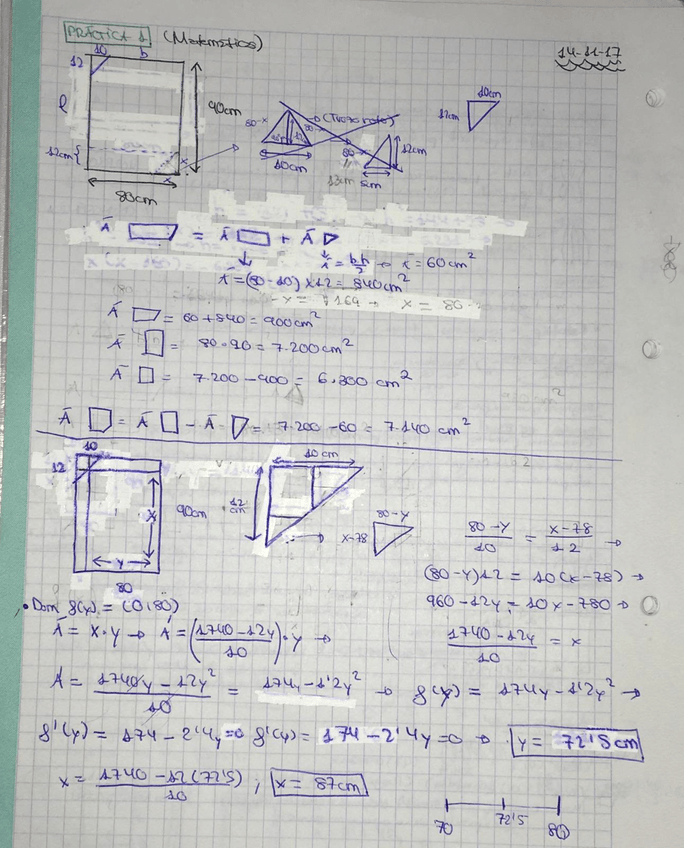 PRÁCTICA 1 (Matemáticas)
14-11-17
10 b
12
l
90cm
12cm
80cm
(Trozo roto)
10cm
12cm
5cm
13cm
10cm
12cm
Á = Á + Á
Á = bh/2 → Á = 60cm²
Á = (80-10) x 12 = 840cm²
x = 86
Á = 60 + 840 = 900cm²
Á = 80·90 = 7.200cm²
Á = 7.200 - 900 = 6.300 cm²
Á = Á - Á = 7.200 - 60 = 7.140 cm²
10
12
x
90cm
y
80
10 cm
12 cm
80-y
x-78
(80-y)/10 = (x-78)/12 →
(80-y)12 = 10(x-78) →
960-12y = 10x-780 →
(1740-12y)/10 = x
• Dom f(y) = (0,80)
Á = x·y → Á = ((1740-12y)/10)·y →
Á = (1740y-12y²)/10 = 174y-1'2y² → f(y) = 174y-1'2y² →
f'(y) = 174-2'4y=0 f'(y) = 174-2'4y=0 → y = 72'5cm
x = (1740-12(72'5))/10 ; x = 87cm
70 72'5 80